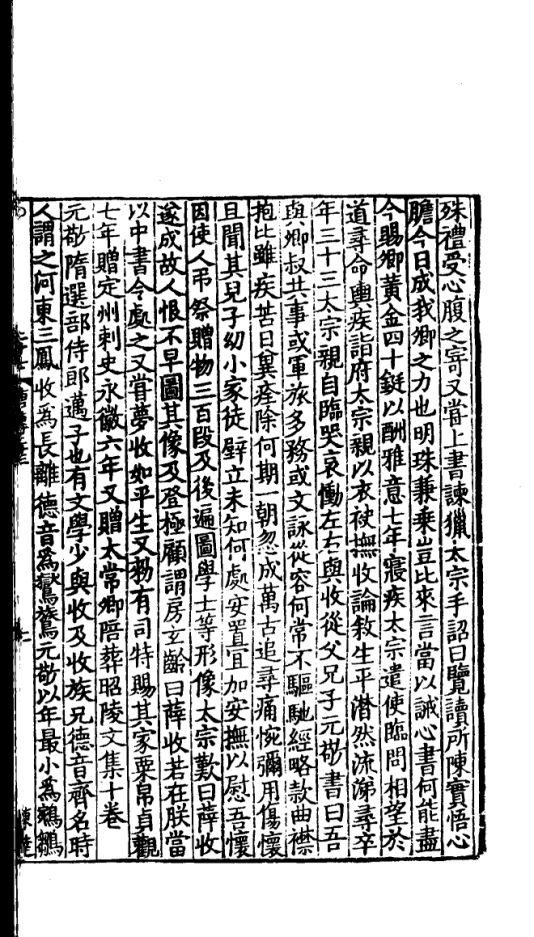 殊禮受心腹之寄又甞上書諫獵太宗手詔曰覽讀所陳實悟心
膽今日成我卿之力也明珠兼乗豈比來言當以誠心書何能盡
今賜卿黃金四十鋌以酬雅意七年寢疾太宗遣使臨問相望於
道尋命輿疾詣府太宗親以衣袂撫收論敘生平潸然流涕尋卒
年三十三太宗親自臨哭哀慟左右與收從父兄子元敬書曰吾
與卿叔共事或軍旅多務或文詠從容何常不驅馳經略款曲襟
抱比雖疾苦日冀痊除何期一朝忽成萬古追尋痛惋彌用傷懷
且聞其兒子幼小家徒壁立未知何處安置且加安撫以慰吾懷
因使人弔祭贈物三百段及後遍圖學士等形像太宗歎曰薛收
遂成故人恨不早圖其像及登極顧謂房玄齡曰薛收若在朕當
以中書令處之又甞夢收如平生又勑有司特賜其家粟帛貞觀
七年贈定州刺史永徽六年又贈太常卿陪葬昭陵文集十卷
元敬隋選部侍郎邁子也有文學少與收及收族兄德音齊名時
人謂之河東三鳳收爲長離德音爲鸑鷟元敬以年最小爲鵷鶵